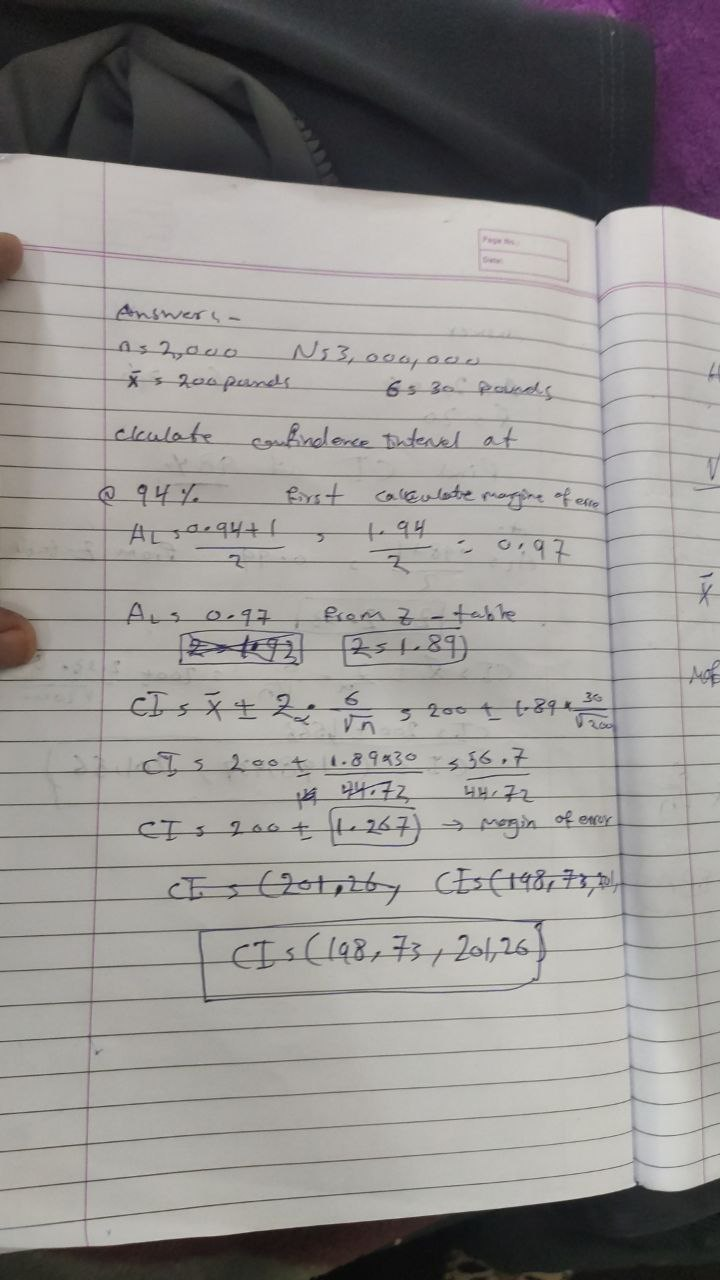 Page No.:
Date:
Answers -
n = 2,000 N = 3,000,000
x̄ = 200 pounds σ = 30 pounds
clculate confindence Interval at
@ 94% first calculate margine of erre
AL = 0.94+1/2 , 1.94/2 = 0.97
AL = 0.97, from Z - table
Z = 1.89
CI = x̄ ± Zα · σ/√n = 200 ± 1.89 * 30/√200
CI = 200 ± 1.89*30/44.72 = 56.7/44.72
CI = 200 ± 1.267 → mogin of error
CI = (201,26, CI = (198,73,201,
CI = (198,73, 201,26)
H
V
x̄
MOE